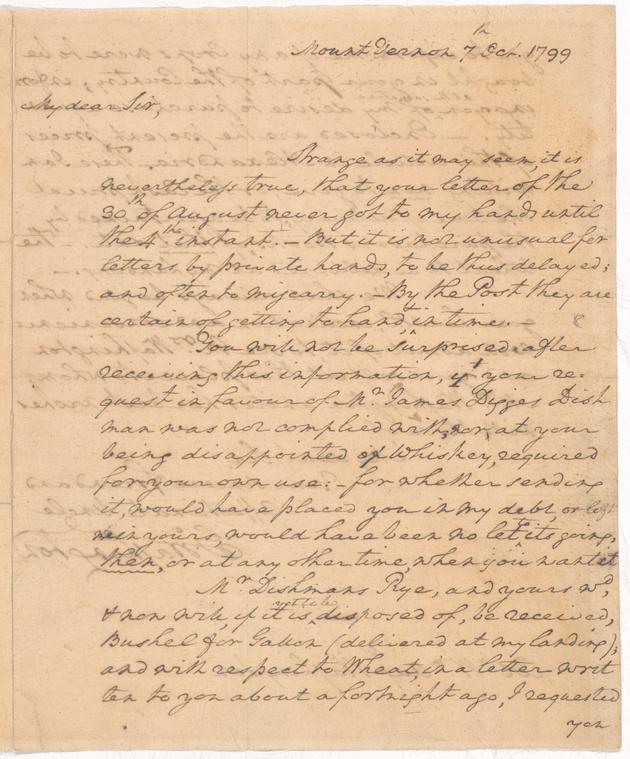 Mount Vernon 7th Oct. 1799
My dear Sir,
Strange as it may seem, it is
nevertheless true, that your letter of the
30th of August never got to my hands until
the 4th instant. — But it is not unusual for
letters by private hands, to be thus delayed;
and often to miscarry. — By the Post they are
certain of getting to hand in time.
You will not be surprised after
receiving this information, if your re-
quest in favour of Mr. James Digges Dish
man was not complied with, nor, at your
being disappointed of Whiskey, required
for your own use: — for whether sending
it, would have placed you in my debt, or
me in yours, would have been no let to its going,
then, or at any other time, when you wanted it
Mr. Dishmans Rye, and yours wd.
& now will, if it is not to be disposed of, be received,
Bushel for Gallon (delivered at my landing);
and with respect to Wheat, in a letter writ
ten to you about a fortnight ago, I requested
you